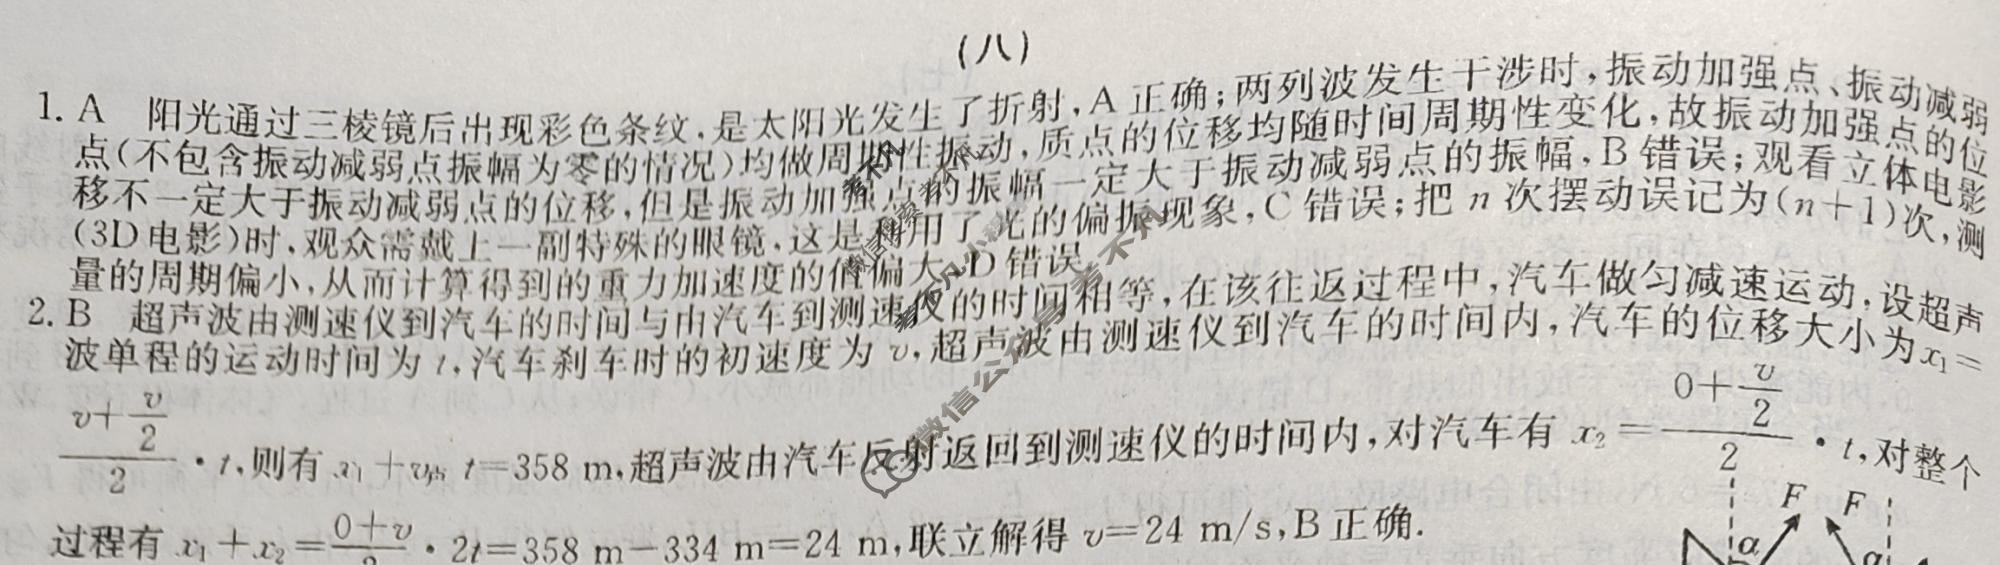 (八)
1. A 阳光通过三棱镜后出现彩色条纹,是太阳光发生了折射,A 正确;两列波发生干涉时,振动加强点、振动减弱
点(不包含振动减弱点振幅为零的情况)均做周期性振动,质点的位移均随时间周期性变化,故振动加强点的位
移不一定大于振动减弱点的位移,但是振动加强点的振幅一定大于振动减弱点的振幅,B 错误;观看立体电影
(3D 电影)时,观众需戴上一副特殊的眼镜,这是利用了光的偏振现象,C 错误;把 n 次摆动误记为(n+1)次,测
量的周期偏小,从而计算得到的重力加速度的值偏大,D 错误.
2. B 超声波由测速仪到汽车的时间与由汽车到测速仪的时间相等,在该往返过程中,汽车做匀减速运动,设超声
波单程的运动时间为 t,汽车刹车时的初速度为 v,超声波由测速仪到汽车的时间内,汽车的位移大小为 x₁=
(v+v/2)/2 · t,则有 x₁+v声 t=358 m,超声波由汽车反射返回到测速仪的时间内,对汽车有 x₂=(0+v/2)/2 · t,对整个
过程有 x₁+x₂=(0+v)/2 · 2t=358 m-334 m=24 m,联立解得 v=24 m/s,B 正确.
F F
α α